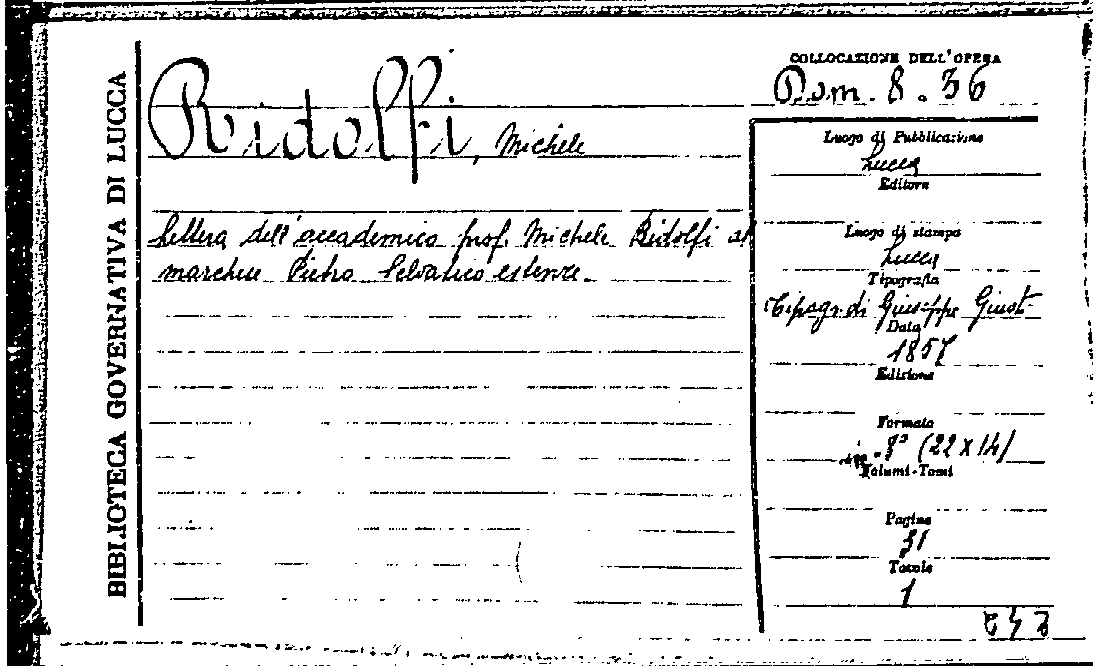 BIBLIOTECA GOVERNATIVA DI LUCCA
Ridolfi, Michele
Lettera dell'accademico prof. Michele Ridolfi al
marchese Pietro Selvatico estense.
COLLOCAZIONE DELL'OPERA
Rom. 8. 36
Luogo di Pubblicazione
Lucca
Editore
Luogo di stampa
Lucca
Tipografia
Tipogr. di Giuseppe Giusti
Data
1857
Edizione
Formato
in-8° (22 x 14)
Volumi-Tomi
Pagine
31
Tavole
1